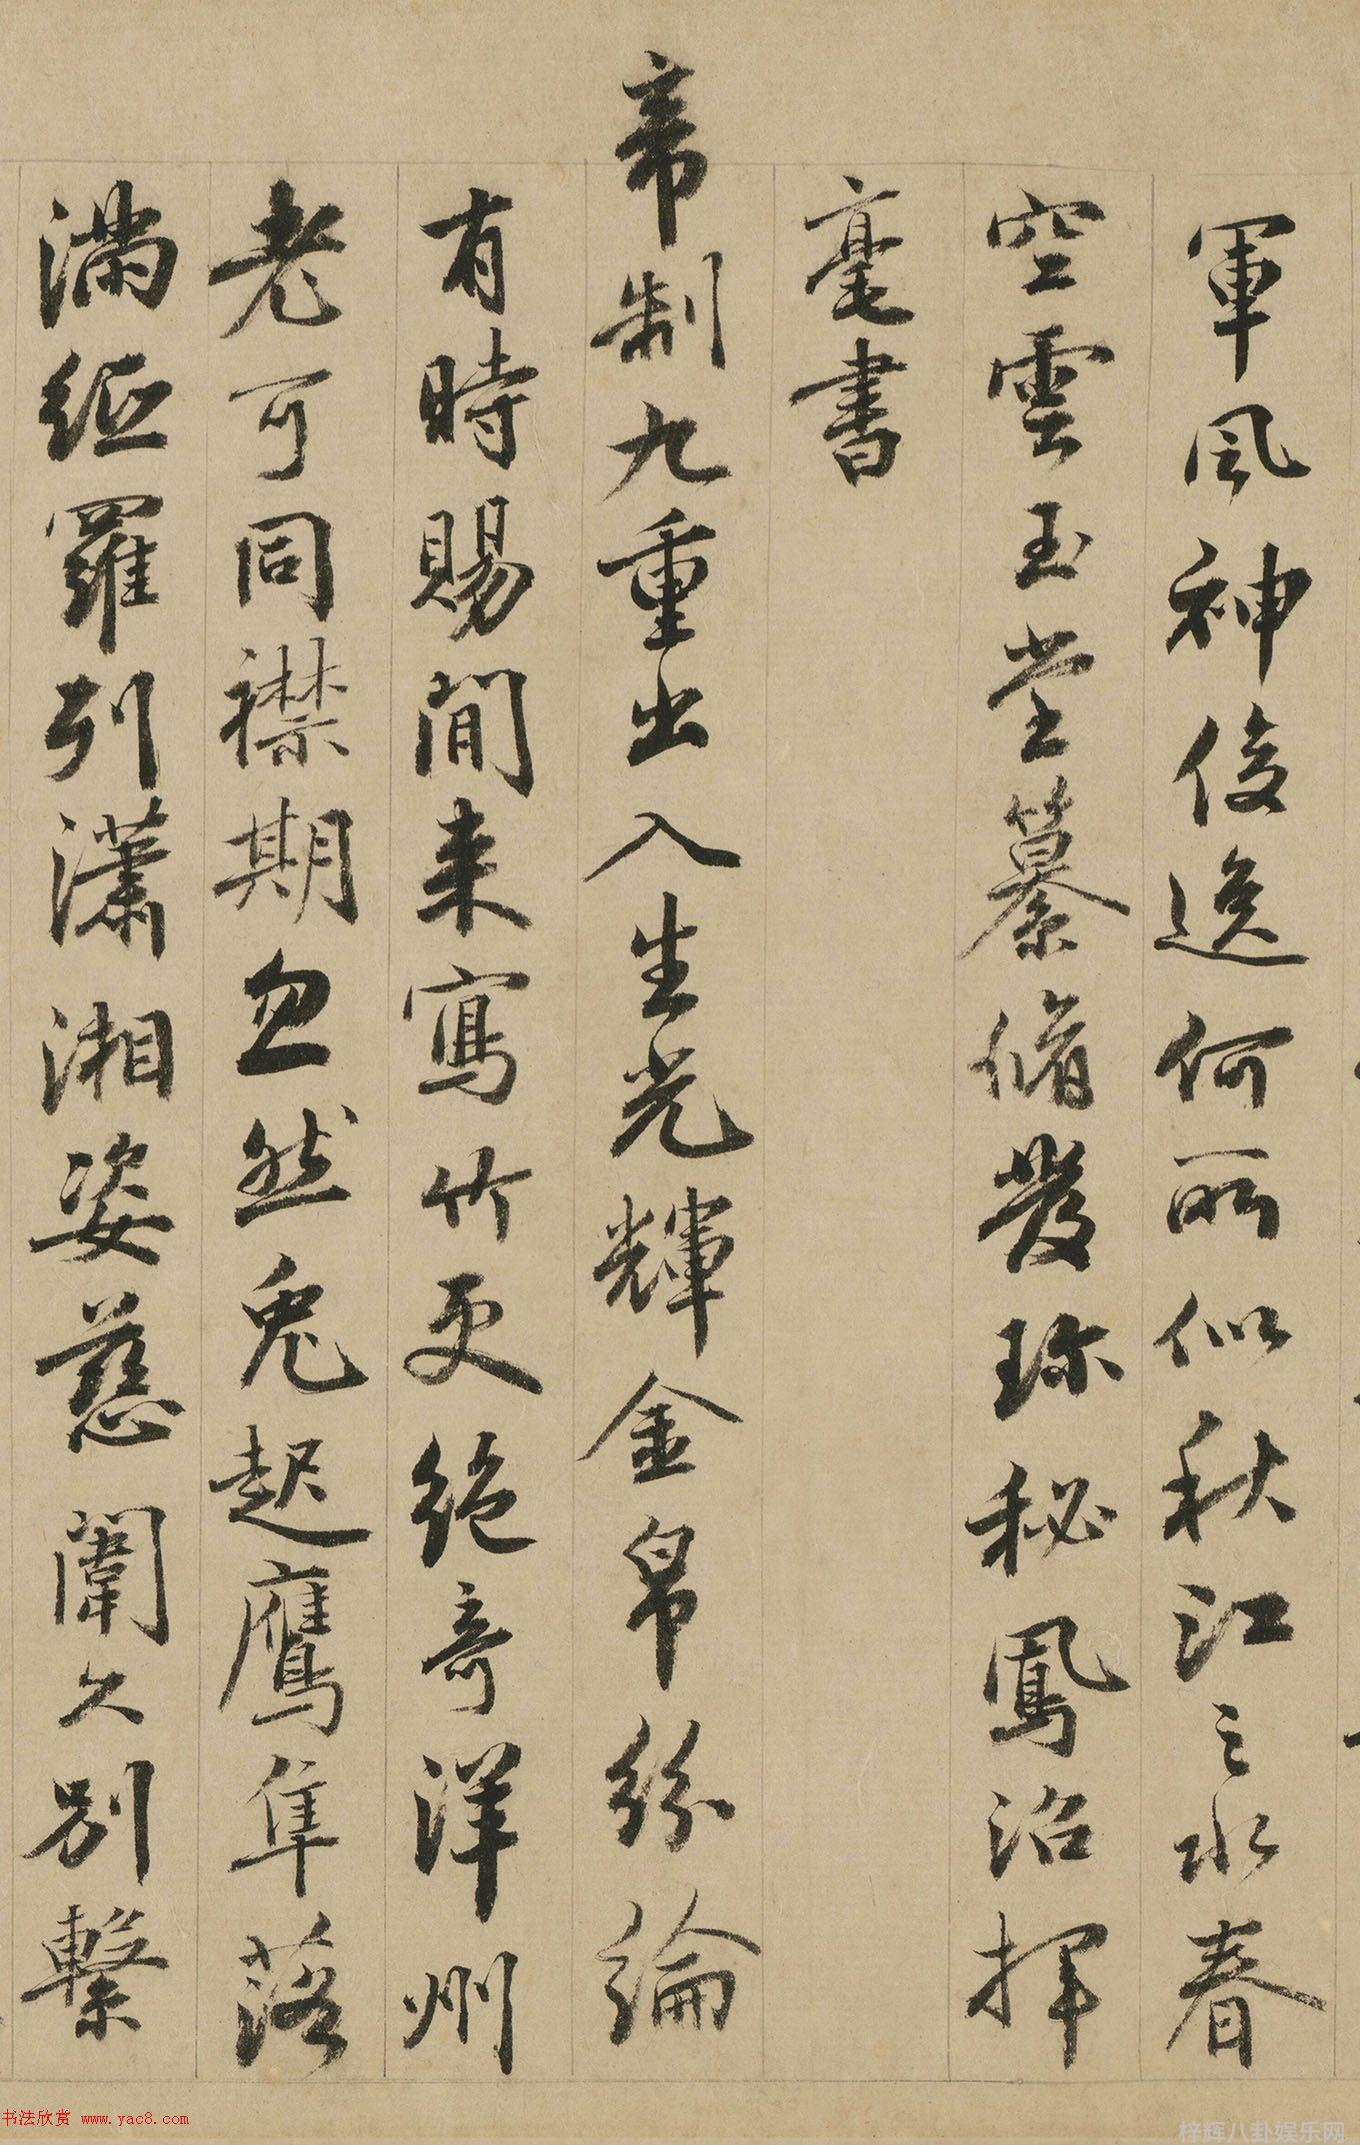 軍風神俊逸何所似秋江之水春
空雲玉堂篡脩發珎秘鳳沼揮
毫書
帝制九重出入生光輝金帛紛綸
有時賜閒来寫竹更絶奇洋州
老可同襟期忽然兔起鷹隼落
滿絙羅列瀟湘姿慈闈久別繫
书法欣赏 www.yac8.com
梓辉八卦娱乐网